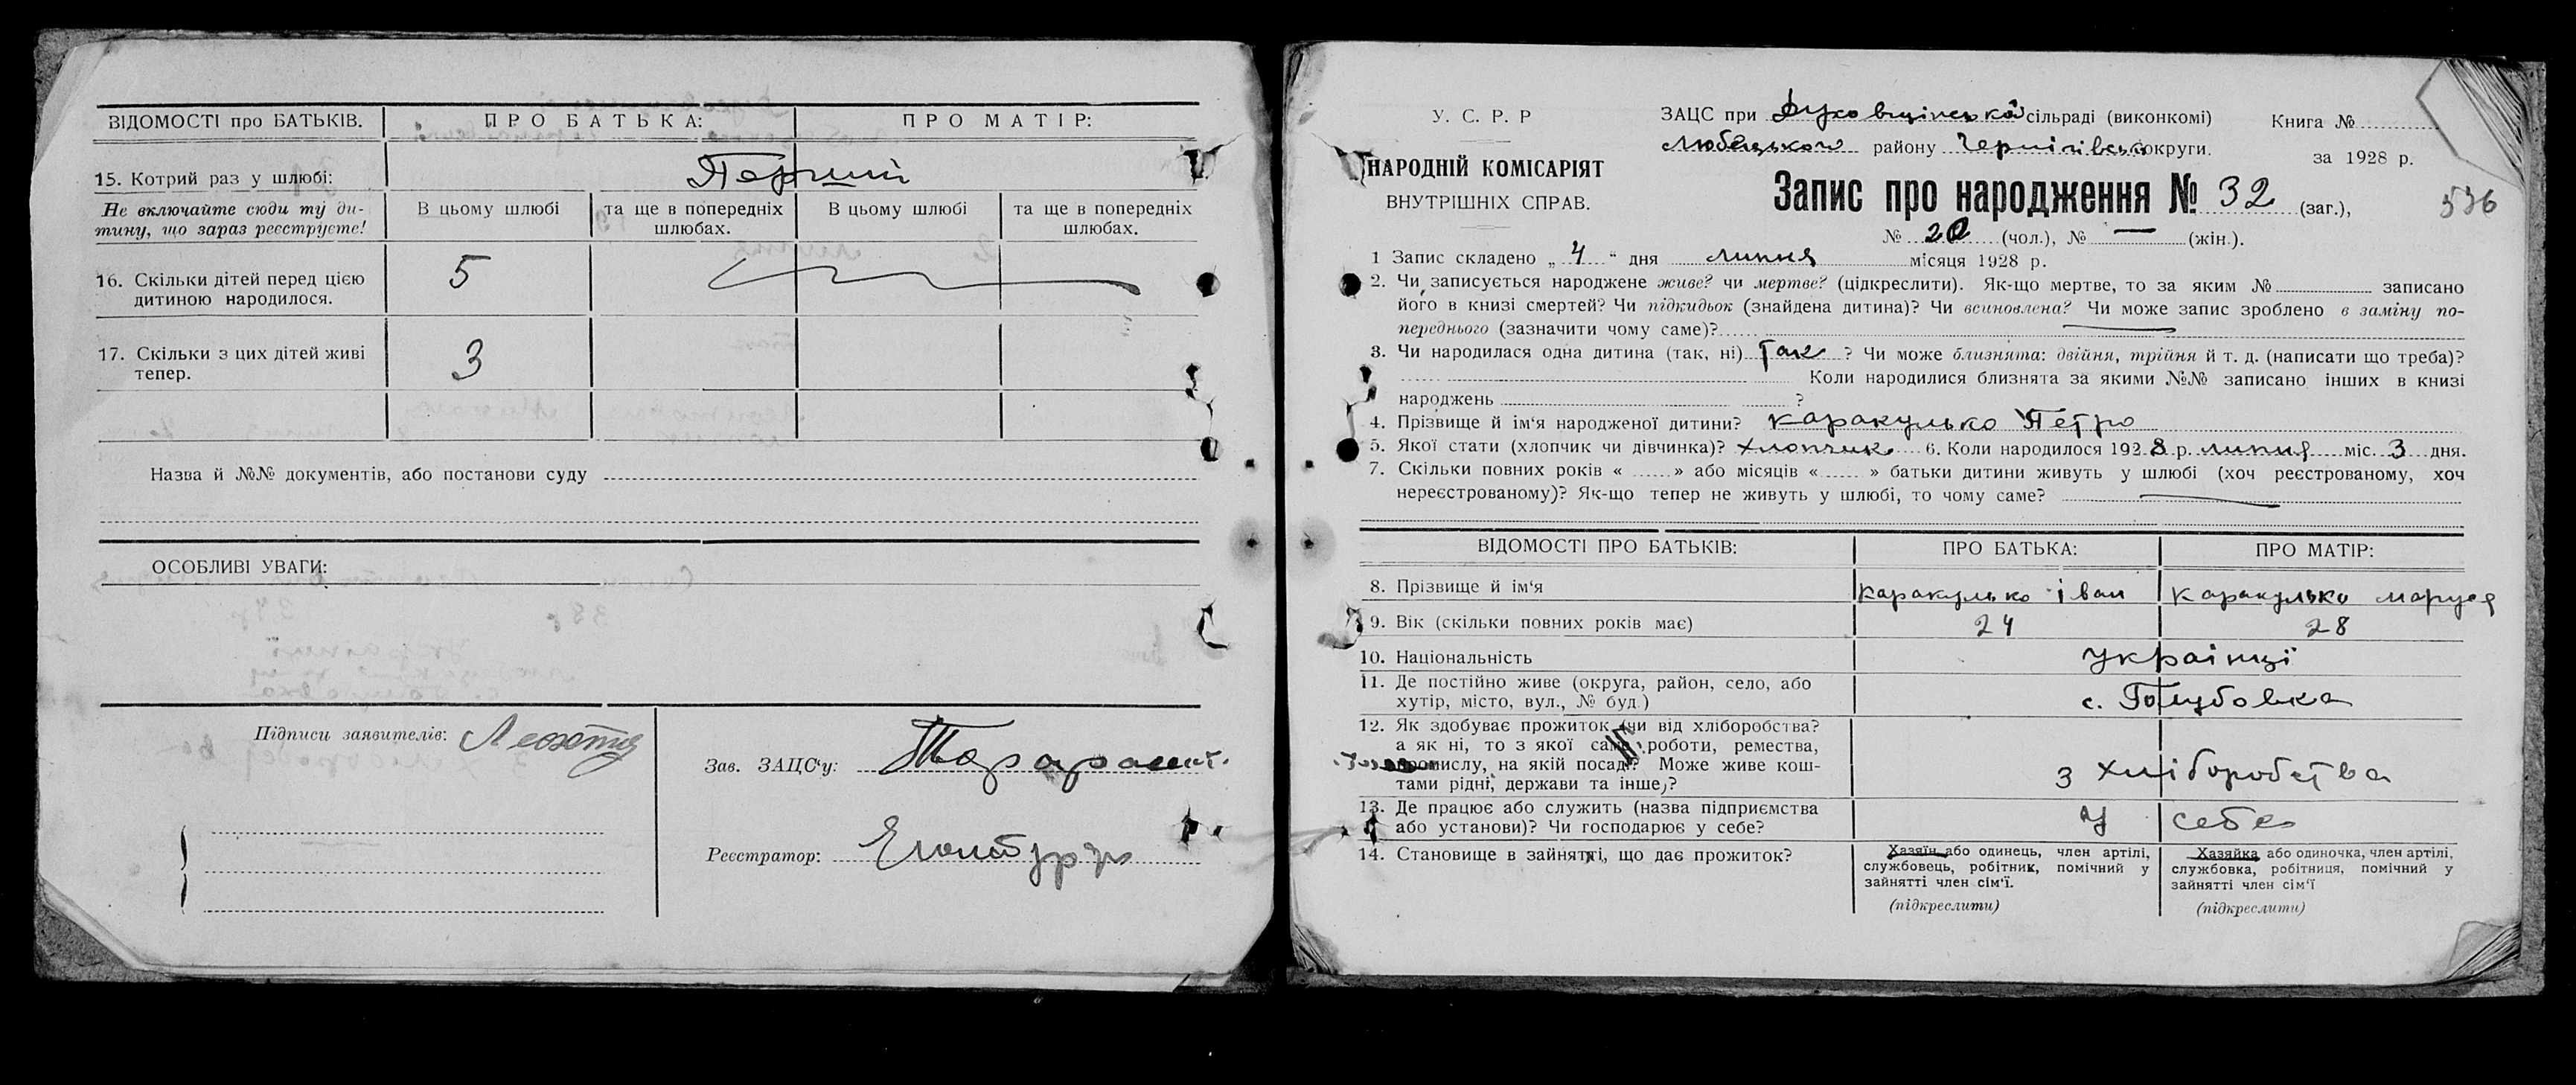 ВІДОМОСТІ про БАТЬКІВ.
ПРО БАТЬКА:
ПРО МАТІР:
15. Котрий раз у шлюбі:
Перший
Не включайте сюди ту ди-
тину, що зараз реєструєте!
В цьому шлюбі
та ще в попередніх
шлюбах.
В цьому шлюбі
та ще в попередніх
шлюбах.
16. Скільки дітей перед цією
дитиною народилося.
5
17. Скільки з цих дітей живі
тепер.
3
Назва й №№ документів, або постанови суду
ОСОБЛИВІ УВАГИ:
Підписи заявителів:
Зав. ЗАЦС'у:
Реєстратор:
У. С. Р. Р
НАРОДНІЙ КОМІСАРІЯТ
ВНУТРІШНІХ СПРАВ.
ЗАЦС при сільраді (виконкомі)
Любецького району Чернігівської округи.
Книга №
за 1928 р.
Запис про народження № 32 (заг.),
536
№ 20 (чол.), № — (жін.).
1 Запис складено „ 4 " дня липня місяця 1928 р.
2. Чи записується народжене живе? чи мертве? (цідкреслити). Як-що мертве, то за яким № записано
його в книзі смертей? Чи підкидьок (знайдена дитина)? Чи всиновлена? Чи може запис зроблено в заміну по-
переднього (зазначити чому саме)?
3. Чи народилася одна дитина (так, ні) Так ? Чи може близнята: двійня, трійня й т. д. (написати що треба)?
Коли народилися близнята за якими №№ записано інших в книзі
народжень ?
4. Прізвище й ім'я народженої дитини? Каракулько Петро
5. Якої стати (хлопчик чи дівчинка)? хлопчик 6. Коли народилося 1928 р. липня міс. 3 дня.
7. Скільки повних років « » або місяців « » батьки дитини живуть у шлюбі (хоч реєстрованому, хоч
нереєстрованому)? Як-що тепер не живуть у шлюбі, то чому саме?
ВІДОМОСТІ ПРО БАТЬКІВ:
ПРО БАТЬКА:
ПРО МАТІР:
8. Прізвище й ім'я
Каракулько Іван
Каракулько Маруся
9. Вік (скільки повних років має)
24
28
10. Національність
Українці
11. Де постійно живе (округа, район, село, або
хутір, місто, вул., № буд.)
с. Голубовка
12. Як здобуває прожиток (чи від хліборобства?
а як ні, то з якої саме роботи, ремества,
промислу, на якій посаді? Може живе кош-
тами рідні, держави та інше)?
з хліборобства
13. Де працює або служить (назва підприємства
або установи)? Чи господарює у себе?
У себе
14. Становище в зайнятті, що дає прожиток?
Хазяїн або одинець, член артілі,
службовець, робітник, помічний у
зайнятті член сім'ї.
(підкреслити)
Хазяйка або одиночка, член артілі,
службовка, робітниця, помічний у
зайнятті член сім'ї
(підкреслити)